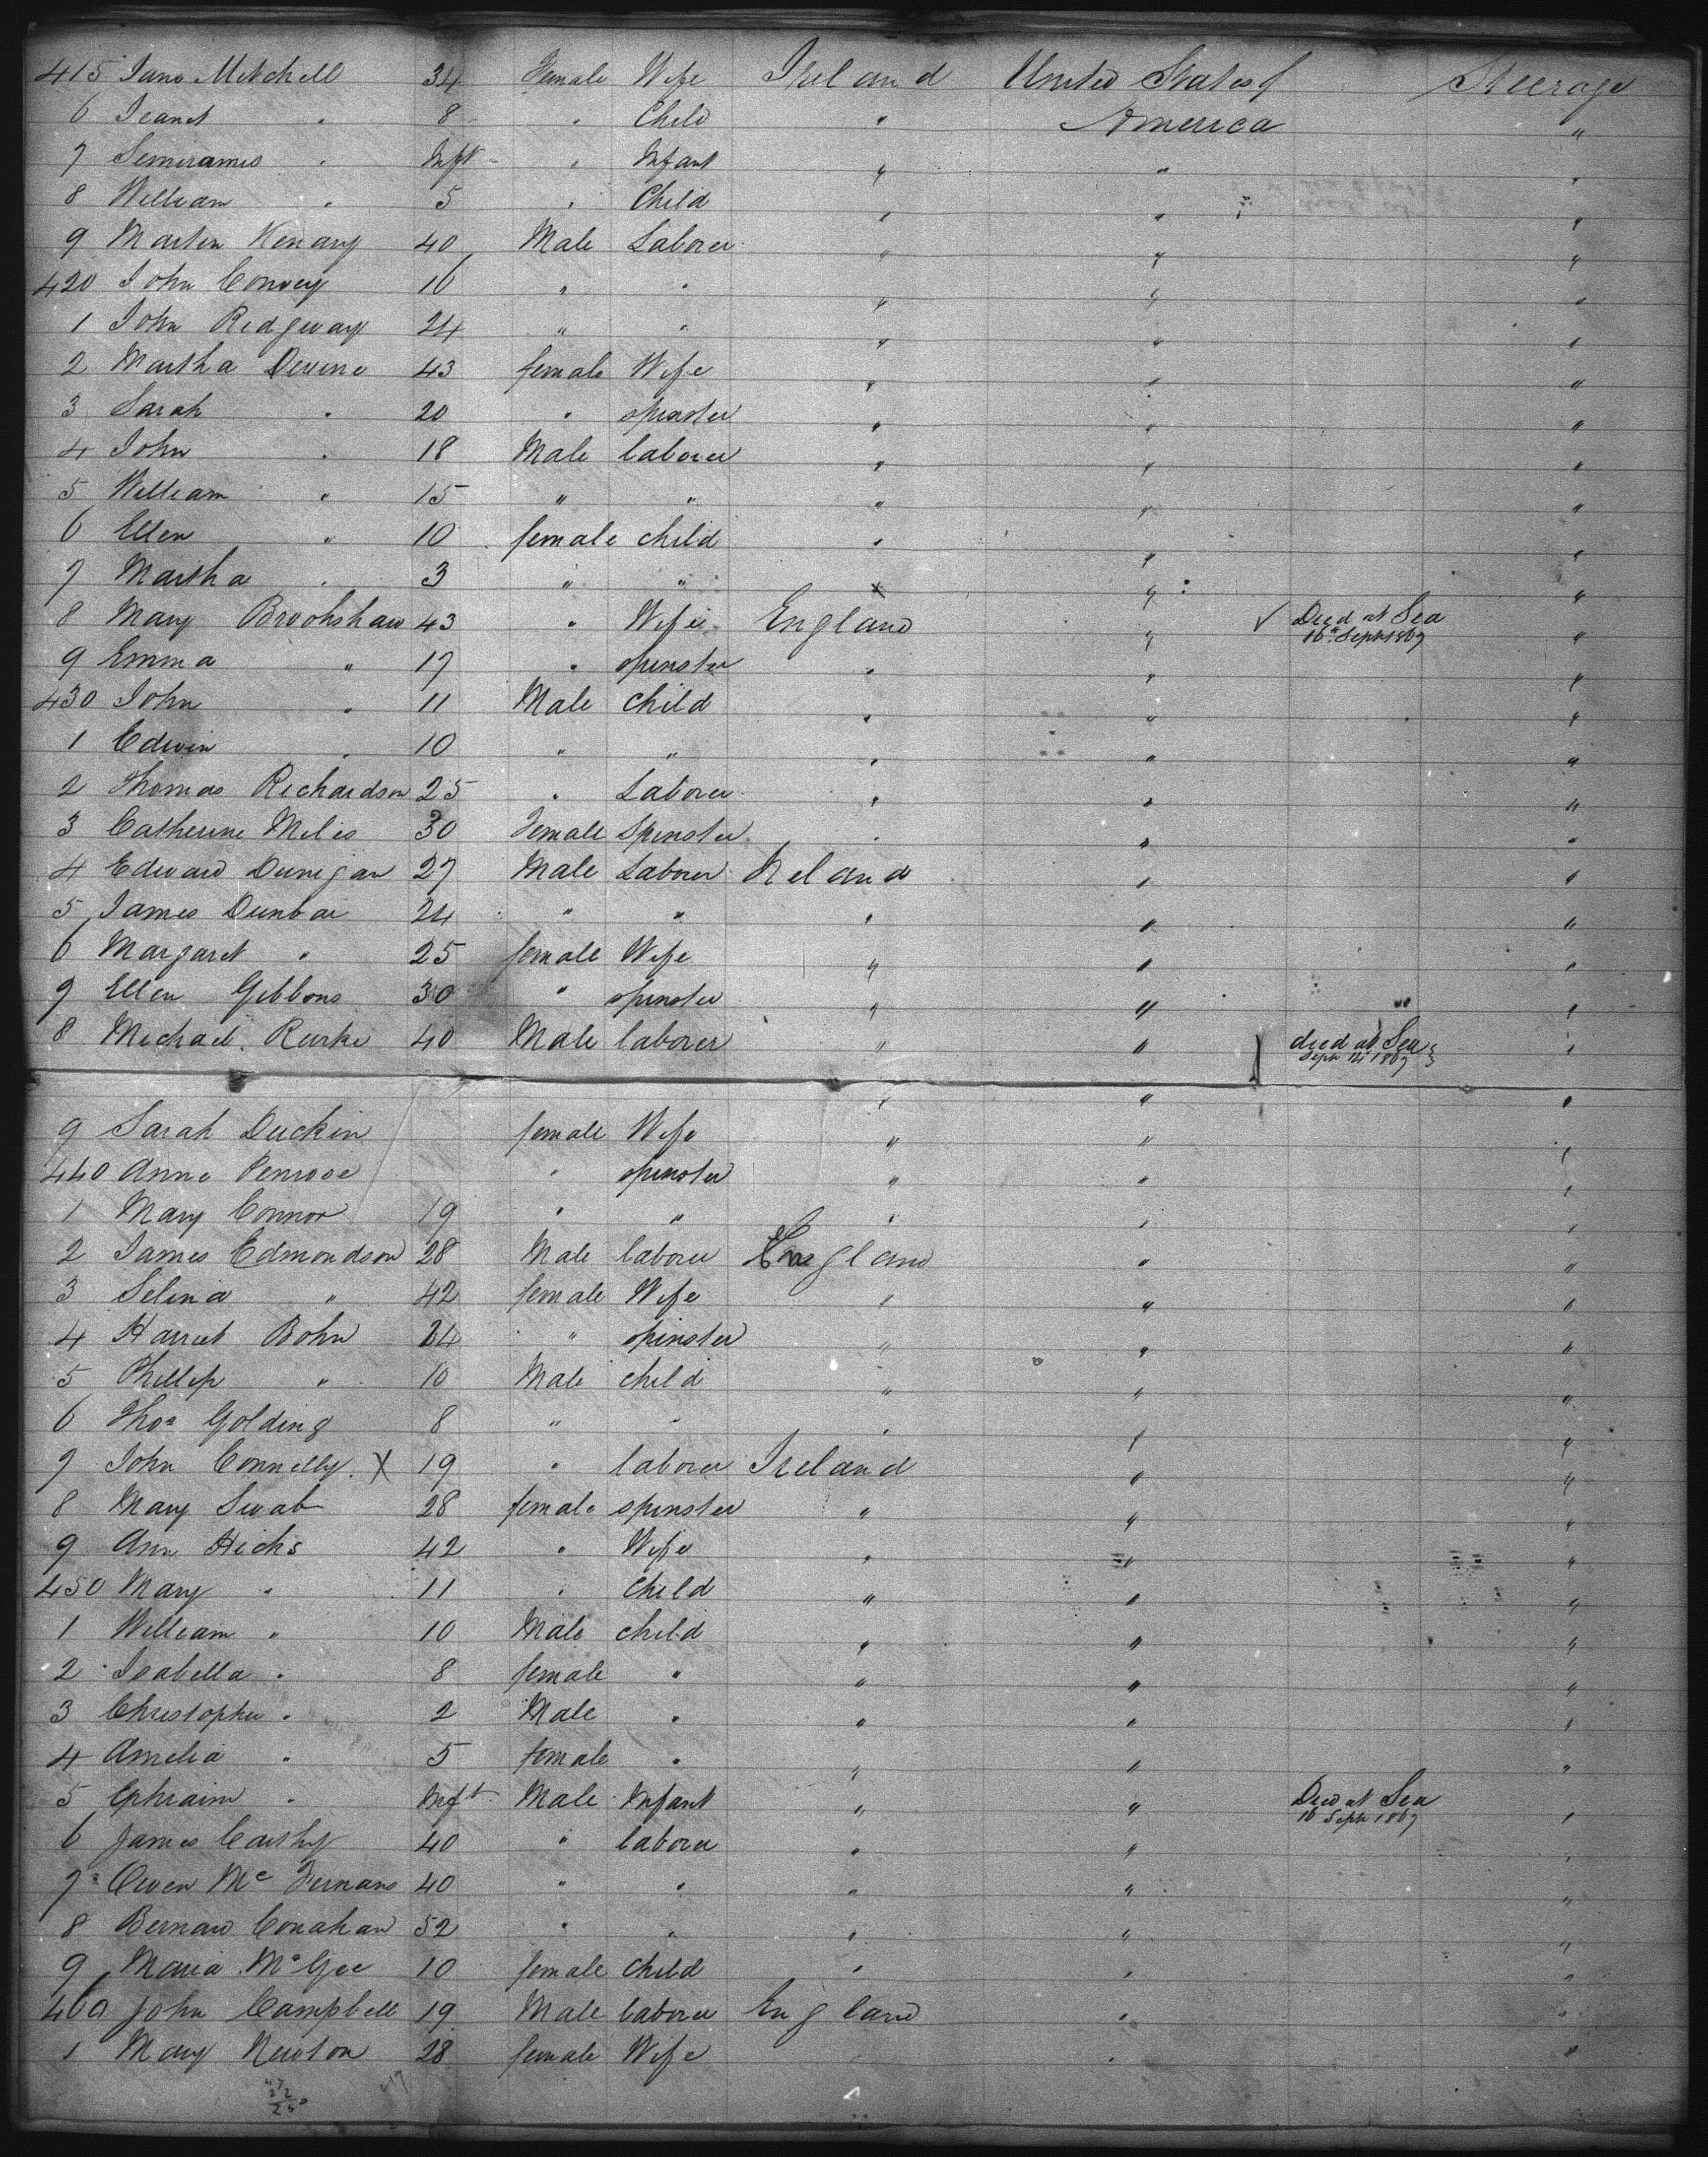 415 Jane Mitchell 34 Female Wife Ireland United States of Steerage
6 Jeanet " 8 " Child " America "
7 Semiramis " Inft " Infant " " "
8 William " 5 " Child " " "
9 Martin Kenary 40 Male Laborer " " "
420 John Convey 16 " " " " "
1 John Ridgway 24 " " " " "
2 Martha Devine 43 female Wife " " "
3 Sarah " 20 " spinster " " "
4 John " 18 Male laborer " " "
5 William " 15 " " " " "
6 Ellen " 10 female child " " "
7 Martha " 3 " " " " "
8 Mary Brookshaw 43 " Wife England " ✓ Died at Sea "
16 Sept 1867
9 Emma " 17 " spinster " " "
430 John " 11 Male child " " "
1 Edwin " 10 " " " " "
2 Thomas Richardson 25 " Laborer " " "
3 Catherine Miles 30 Female Spinster " " "
4 Edward Dunigan 27 Male Laborer Ireland " "
5 James Dunbar 24 " " " " "
6 Margaret " 25 female Wife " " "
7 Ellen Gibbons 30 " spinster " " "
8 Michael Rurke 40 Male laborer " " died at Sea "
Sept 14 1867
" " "
9 Sarah Duckin female Wife " " "
440 Anne Penrose " spinster " " "
1 Mary Connor 19 " " " " "
2 James Edmondson 28 Male laborer England " "
3 Selina " 42 female Wife " " "
4 Harriet Bohn 24 " spinster " " "
5 Phillip " 10 Male child " " "
6 Thos Golding 8 " " " " "
7 John Connelly X 19 " laborer Ireland " "
8 Mary Swab 28 female spinster " " "
9 Ann Hicks 42 " Wife " " "
450 Mary " 11 " child " " "
1 William " 10 Male child " " "
2 Isabella " 8 female " " " "
3 Christopher " 2 Male " " " "
4 Amelia " 5 female " " " "
5 Ephraim " Inft Male Infant " " Died at Sea "
16 Sept 1867
6 James Carthy 40 " laborer " " "
7 Owen Mc 40 " " " " "
8 Bernard Conahan 52 " " " " "
9 Maria McGee 10 female child " " "
460 John Campbell 19 Male laborer England " "
1 Mary Newton 28 female Wife " " "